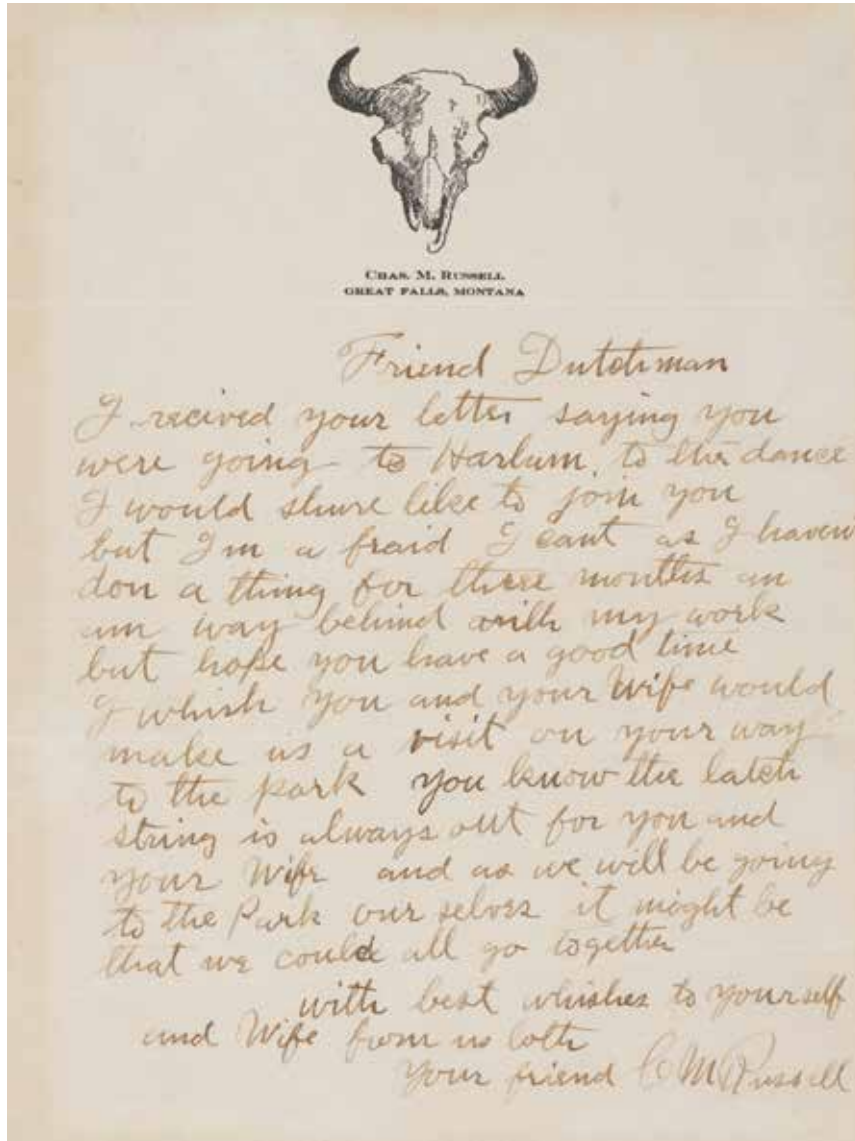 CHAS. M. RUSSELL
GREAT FALLS, MONTANA
Friend Dutchman
I recived your letter saying you
were going to Harlum to the dance
I would shure like to join you
but Im a fraid I cant as I haven
don a thing for three months an
am way behind with my work
but hope you have a good time
I whish you and your Wife would
make us a visit on your way
to the park you know the latch
string is always out for you and
your Wife and as we will be going
to the Park our selvs it might be
that we could all go together
with best whishes to yourself
and Wife from us both
your friend C M Russell